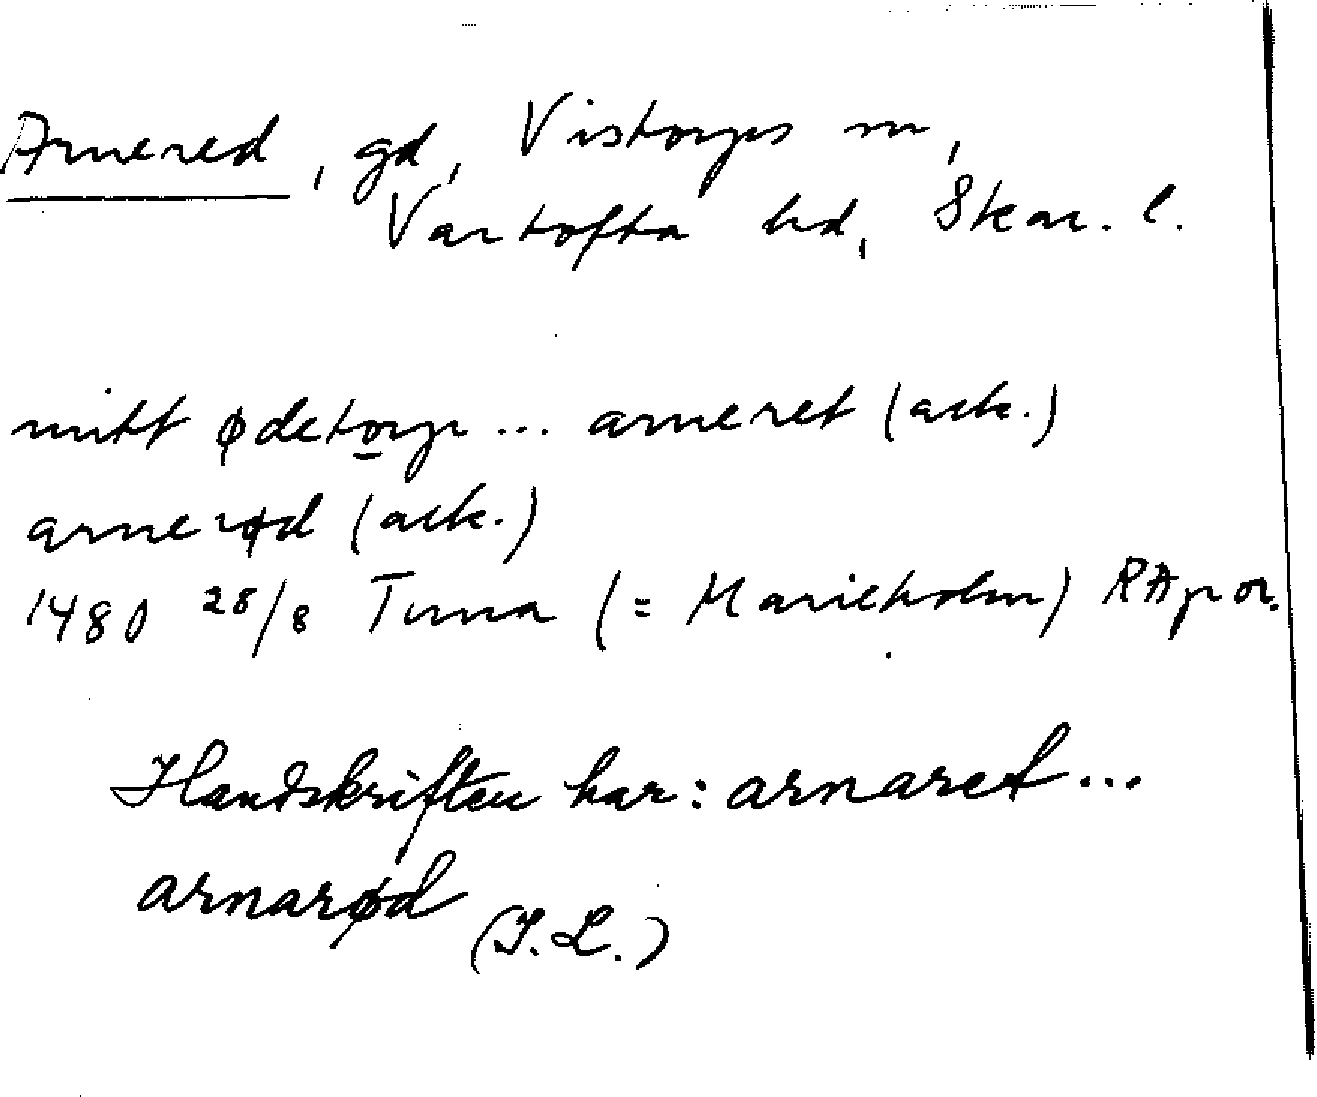 Arnered, gd, Vistorps sn,
Vartofta hd, Skar. l.
mitt ødetorp ... arneret (ack.)
arnerød (ack.)
1480 28/8 Tuna (= Marieholm) RAp or.
Handskriften har: arnaret ...
arnarød (I. L.)